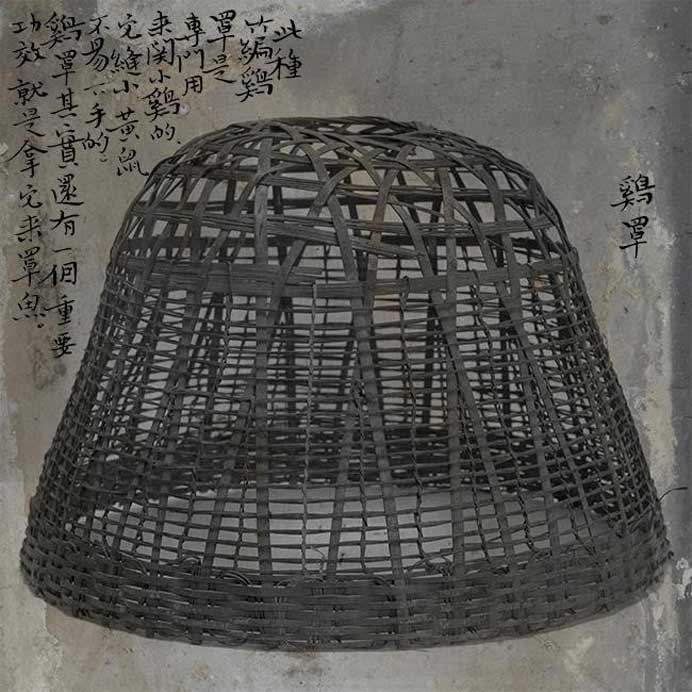 鷄罩
此種
竹編鷄
罩是
專門用
来関小鷄的、
它縫小黃鼠
不易下手的：
鷄罩其實還有一個重要
功效就是拿它来罩魚。